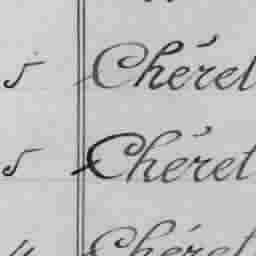 5 Chéret
5 Chéret
4 Chéret